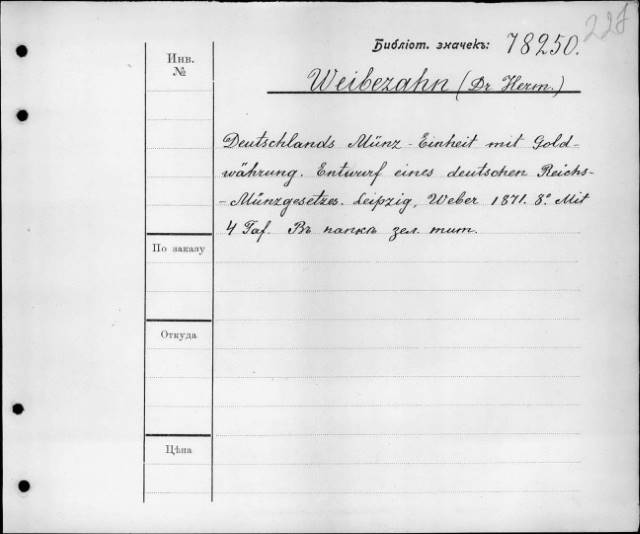 Библіот. значекъ: 78250.
Инв.
№
Weibezahn (Dr Herm.)
Deutschlands Münz-Einheit mit Gold-
währung. Entwurf eines deutschen Reichs-
-Münzgesetzes. Leipzig, Weber 1871. 8º. Mit
4 Taf. Въ папкѣ зел. тит.
По заказу
Откуда
Цѣна